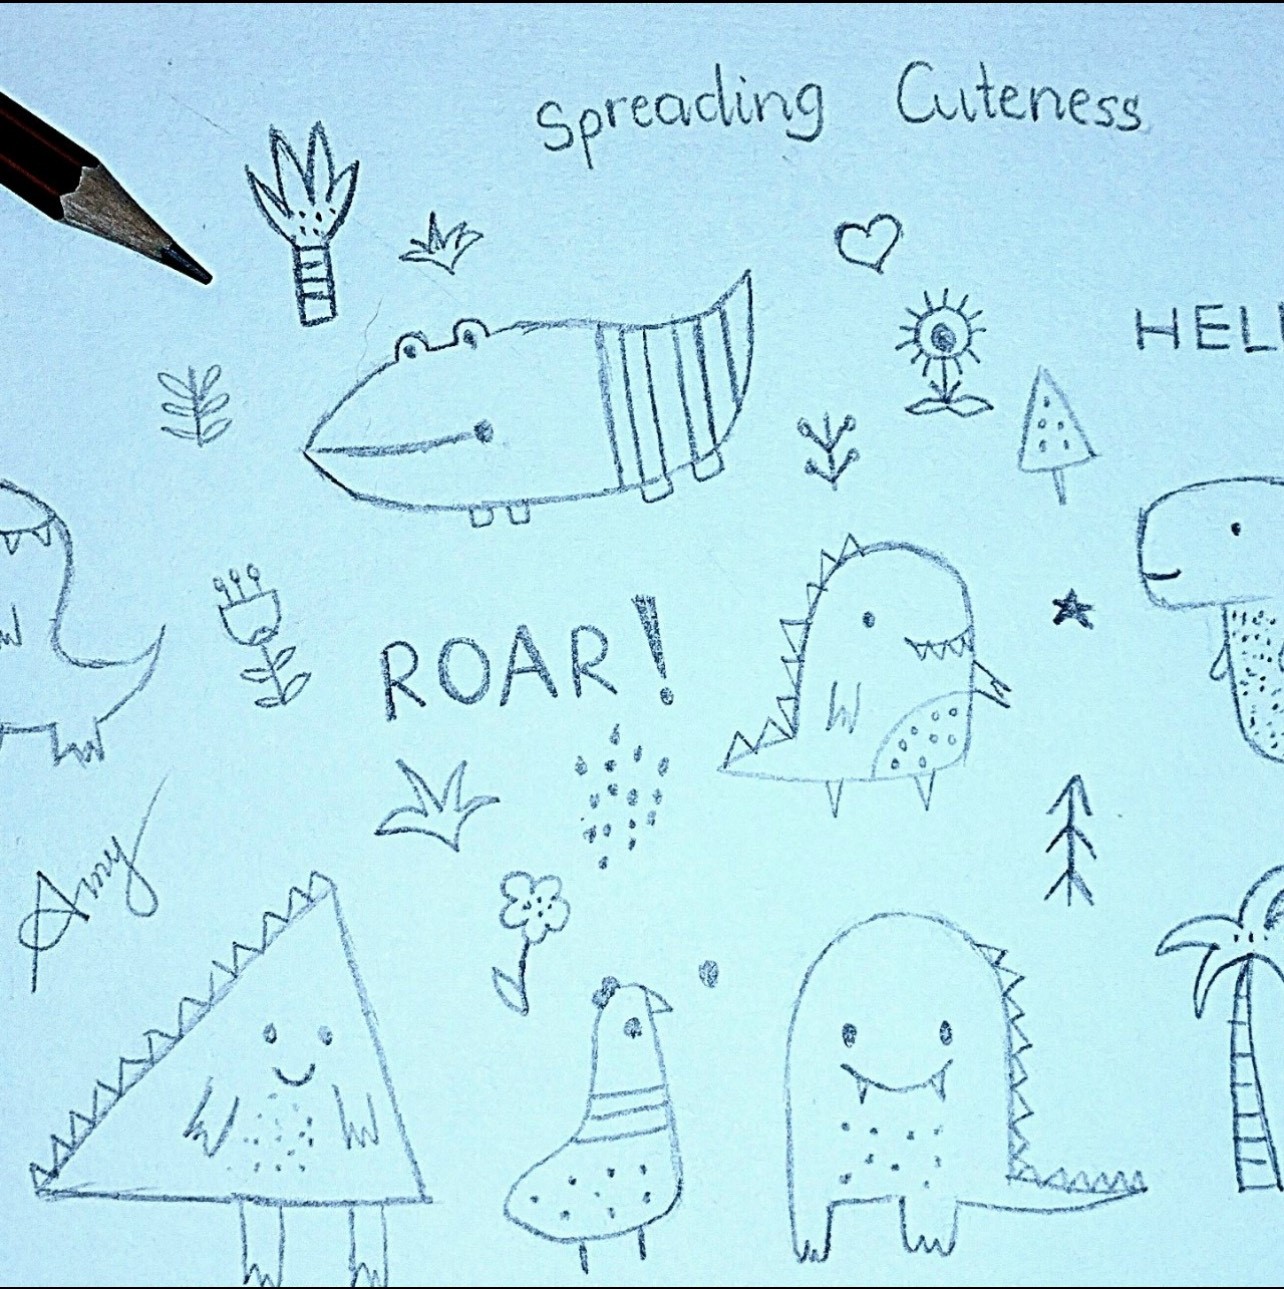 Spreading Cuteness
HELL
ROAR!
Amy